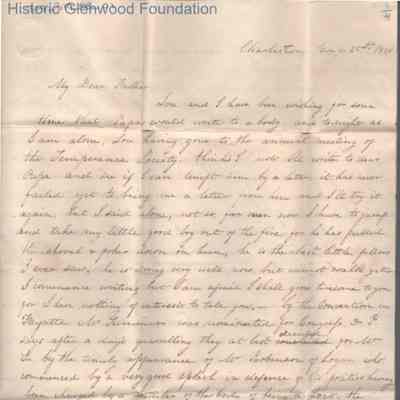 Historic Glenwood Foundation
Charleston, 25th
My Dear Father
Lou and I have been wishing for some
time that Papa would write to a body, and tonight as
I am alone, Lou having gone to the annual meeting of
the Temperance Society, thinks I will write to dear
Papa and see if I can tempt him by a letter, it has never
failed yet to bring me a letter from him and I'll try it
again, but I said alone, not so, for even now I have to jump
and take my little good boy out of the fire, for he has pulled
the shovel & poker down on him, he is the best little fellow
I ever saw, he is doing very well now but cannot walk yet
I commence writing but I am afraid I shall be to you
for I have nothing of interest to tell you, by the Convention in
Fayette Mr was nominated for Congress,
days after a days quarrelling they at last for Mr
by the timely appearance of Mr Robinson of Logan who
commenced by a very good speech in defence of his politics having
been charged by a of the the